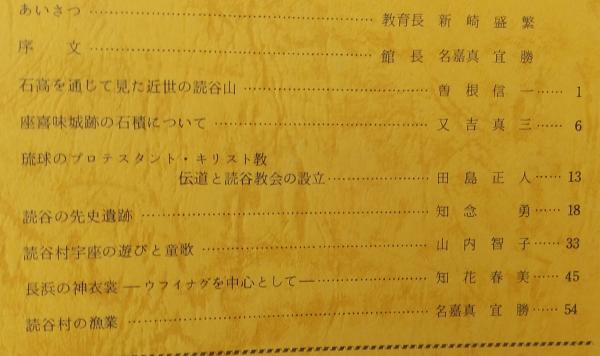 あいさつ………………………………教育長 新崎盛繁
序文………………………………館長 名嘉真宜勝
石高を通じて見た近世の読谷山………………曽根信一……1
座喜味城跡の石積について………………又吉真三……6
琉球のプロテスタント・キリスト教
伝道と読谷教会の設立………………田島正人……13
読谷の先史遺跡………………………………知念勇……18
読谷村宇座の遊びと童歌………………………山内智子……33
長浜の神衣裳―ウフイナグを中心として―………………知花春美……45
読谷村の漁業………………………………名嘉真宜勝……54